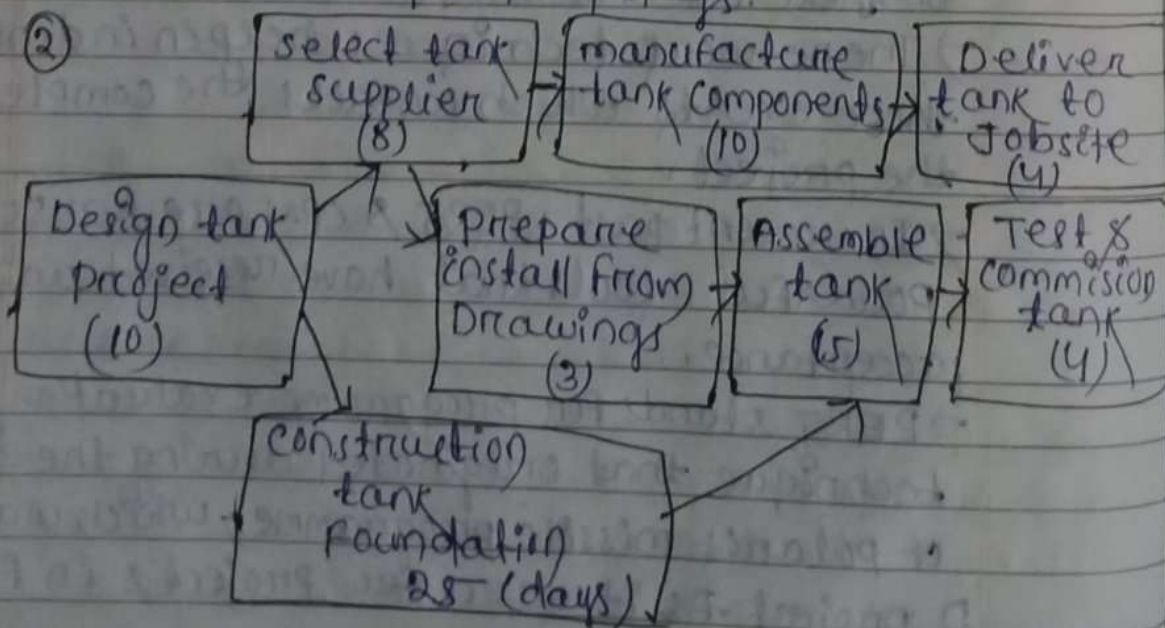 ②
select tank
supplier
(8)
manufacture
tank components
(10)
Deliver
tank to
Jobsite
(4)
Design tank
project
(10)
Prepare
install from
Drawings
(3)
Assemble
tank
(5)
Test &
commision
tank
(4)
construction
tank
Foundation
25 (days)